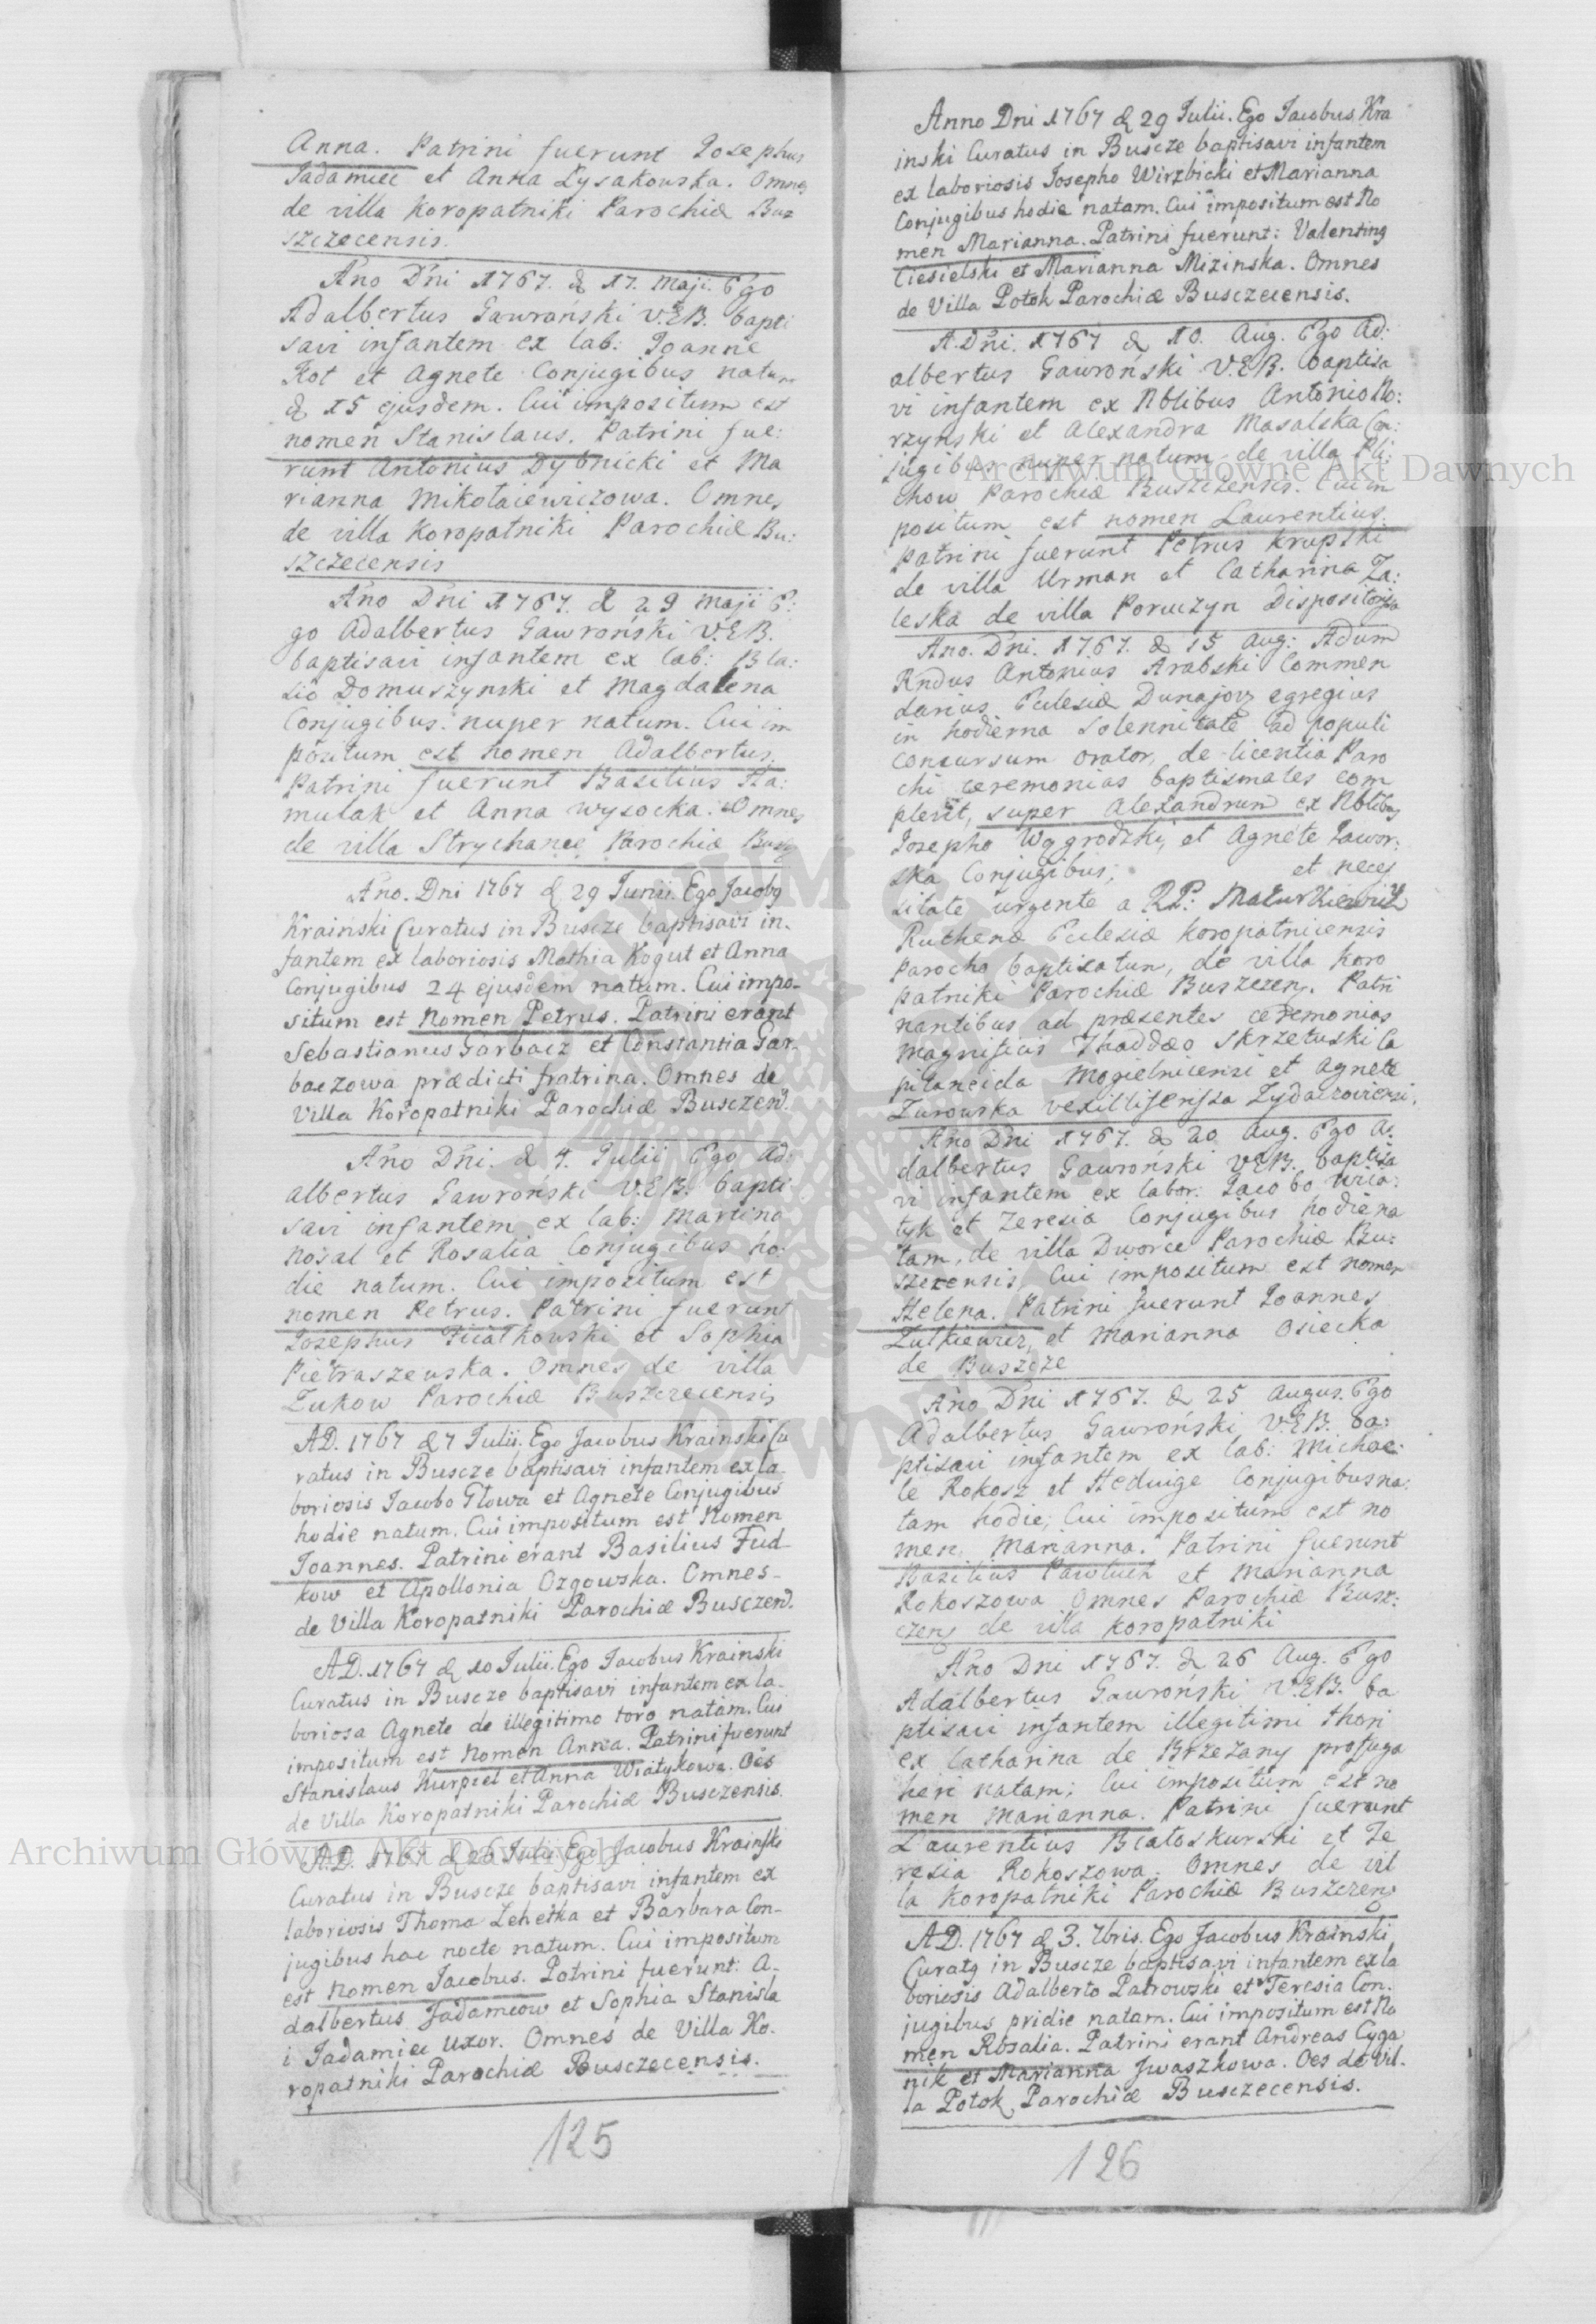 Anna. Patrini fuerunt Josephus
Jadamiec et Anna Lysakowska. Omnes
de villa Koropatniki Parochiæ Bu
szczecensis.
Año Dñi 1767. d 17. Maji. Ego
Adalbertus Gawroński V.E.B. bapti
savi infantem ex lab: Joanne
Kot et Agnete Conjugibus natum
d 15 ejusdem. Cui impositum est
nomen Stanislaus. Patrini fue:
runt Antonius Dybnicki et Ma
rianna Mikołaiewiczowa. Omnes
de villa Koropatniki Parochiæ Bu:
szczecensis
Año Dñi 1767. d 29 Maji E:
go Adalbertus Gawroński V.E.B.
baptisavi infantem ex lab: Bla:
sio Domuszynski et Magdalena
Conjugibus. nuper natum. Cui im
positum est nomen Adalbertus.
Patrini fuerunt Basilius Ha:
mulak et Anna Wysocka. Omnes
de villa Strychance Parochiæ
Año. Dni 1767 d 29 Junii. Ego Jacobg
Krainski Curatus in Buscze baptisavi in-
fantem ex laboriosis Mathia Kogut et Anna
Conjugibus 24 ejusdem natum. Cui impo-
situm est Nomen Petrus. Patrini erant
Sebastianus Garbacz et Constantia Gar-
baczowa prædicti fratrina. Omnes de
Villa Koropatniki Parochiæ Busczen.
Año Dñi. d 4. Julii Ego Ad:
albertus Gawroński V.E.B. bapti
savi infantem ex lab: Martino
Nosal et Rosalia Conjugibus ho:
die natum. Cui impositum est
nomen Petrus. Patrini fuerunt
Josephus Fiiałkowski et Sophia
Pietraszewska. Omnes de villa
Zukow Parochiæ Buszczecensis
AD. 1767 d 7 Julii. Ego Jacobus Krainski Cu
ratus in Buscze baptisavi infantem ex la-
boriosis Jacobo Głowa et Agnete Conjugibus
hodie natum. Cui impositum est Nomen
Joannes. Patrini erant Basilius Fud-
kow et Apollonia Ozgowska. Omnes-
de Villa Koropatniki Parochiæ Busczen.
AD. 1767 d 10 Julii. Ego Jacobus Krainski
Curatus in Buscze baptisavi infantem ex la-
boriosa Agnete de illegitimo toro natam. Cui
impositum est Nomen Anna. Patrini fuerunt
Stanislaus Kurpiel et Anna Wiatykowa. Oes
de Villa Koropatniki Parochiæ Busczensis.
AD. 1767 d 26 Julii Ego Jacobus Krainski
Curatus in Buscze baptisavi infantem ex
laboriosis Thoma Zehetka et Barbara Con-
jugibus hac nocte natum. Cui impositum
est Nomen Jacobus. Patrini fuerunt: A-
dalbertus Jadamcow et Sophia Stanisla
i Jadamiec uxor. Omnes de Villa Ko-
ropatniki Parochiæ Busczecensis.
125
Anno Dni 1767 d 29 Julii. Ego Jacobus Kra
inski Curatus in Buscze baptisavi infantem
ex laboriosis Josepho Wirzbicki et Marianna
Conjugibus hodie natam. Cui impositum est No
men Marianna. Patrini fuerunt: Valenting
Ciesielski et Marianna Mizinska. Omnes
de Villa Potok Parochiæ Busczecensis.
A. Dñi. 1767 d 10. Aug. Ego Ad:
albertus Gawroński V.E.B. baptisa
vi infantem ex Nblibus Antonio Mo:
rzynski et Alexandra Masalska Con:
jugibus nuper natum de villa Pli:
chow Parochiæ Buszczensis. Cui im
positum est nomen Laurentius.
Patrini fuerunt Petrus Krupski
de villa Urman et Catharina Za:
leska de villa Poruczyn
Ano. Dñi. 1767. d 15 Aug: Adum
Rndus Antonius Arabski Commen
darius Eclesiæ Dunajow egregius
in hodierna Solennitate ad populi
concursum orator, de licentia Paro
chi ceremonias baptismales com
plevit, super Alexandrum ex Nblibus
Josepho Wygrodzki, et Agnete Jawor:
ska Conjugibus, et neces
sitate urgente a RP: Maturkiewicz
Ruthenæ Eclesiæ Koropatnicensis
Parocho baptisatum, de villa Koro
patniki Parochiæ Buszczen. Patri
nantibus ad præsentes ceremonias
Magnificis Thaddæo Skrzetuski Ca
pitaneida Mogielnicensi et Agnete
Zurowska Zydaczoviensi.
Año Dñi 1767. d 20 Aug. Ego A:
dalbertus Gawroński V.E.B. baptisa
vi infantem ex labor: Jacobo Wiia:
tyk et Teresia Conjugibus hodie na
tam, de villa Dworce Parochiæ Bu:
szczensis, Cui impositum est nomen
Helena. Patrini fuerunt Joannes
Zułkiewicz, et Marianna Osiecka
de Buszcze
Año Dñi 1767. d 25 Augus. Ego
Adalbertus Gawroński V.E.B. ba:
ptisavi infantem ex lab: Michae:
le Rokosz et Hedwige Conjugibus na:
tam hodie; Cui impositum est no
men Marianna. Patrini fuerunt
Basilius Pawluch et Marianna
Rokoszowa Omnes Parochiæ Busz:
czens de villa Koropatniki
Año Dni 1767. d 26 Aug. Ego
Adalbertus Gawronski V.E.B. ba
ptisavi infantem illegitimi thori
ex Catharina de Brzezany profuga
heri natam; Cui impositum est no
men Marianna. Patrini fuerunt
Laurentius Białoskurski et Te
resia Rokoszowa. Omnes de vil
la Koropatniki Parochiæ Buszczens
AD. 1767 d 3. 7bris. Ego Jacobus Krainski
Curatg in Buscze baptisavi infantem ex la
boriosis Adalberto Patrowski et Teresia Con-
jugibus pridie natam. Cui impositum est No
men Rosalia. Patrini erant Andreas Cyga
nik et Marianna Jwaszkowa. Oes de Vil-
la Potok Parochiæ Busczecensis.
126
Archiwum Główne Akt Dawnych
Archiwum Główne Akt Dawnych